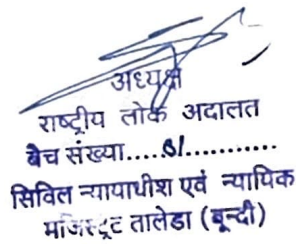 अध्यक्ष
राष्ट्रीय लोक अदालत
बैच संख्या.....81...........
सिविल न्यायाधीश एवं न्यायिक
मजिस्ट्रट तालेडा (बून्दी)